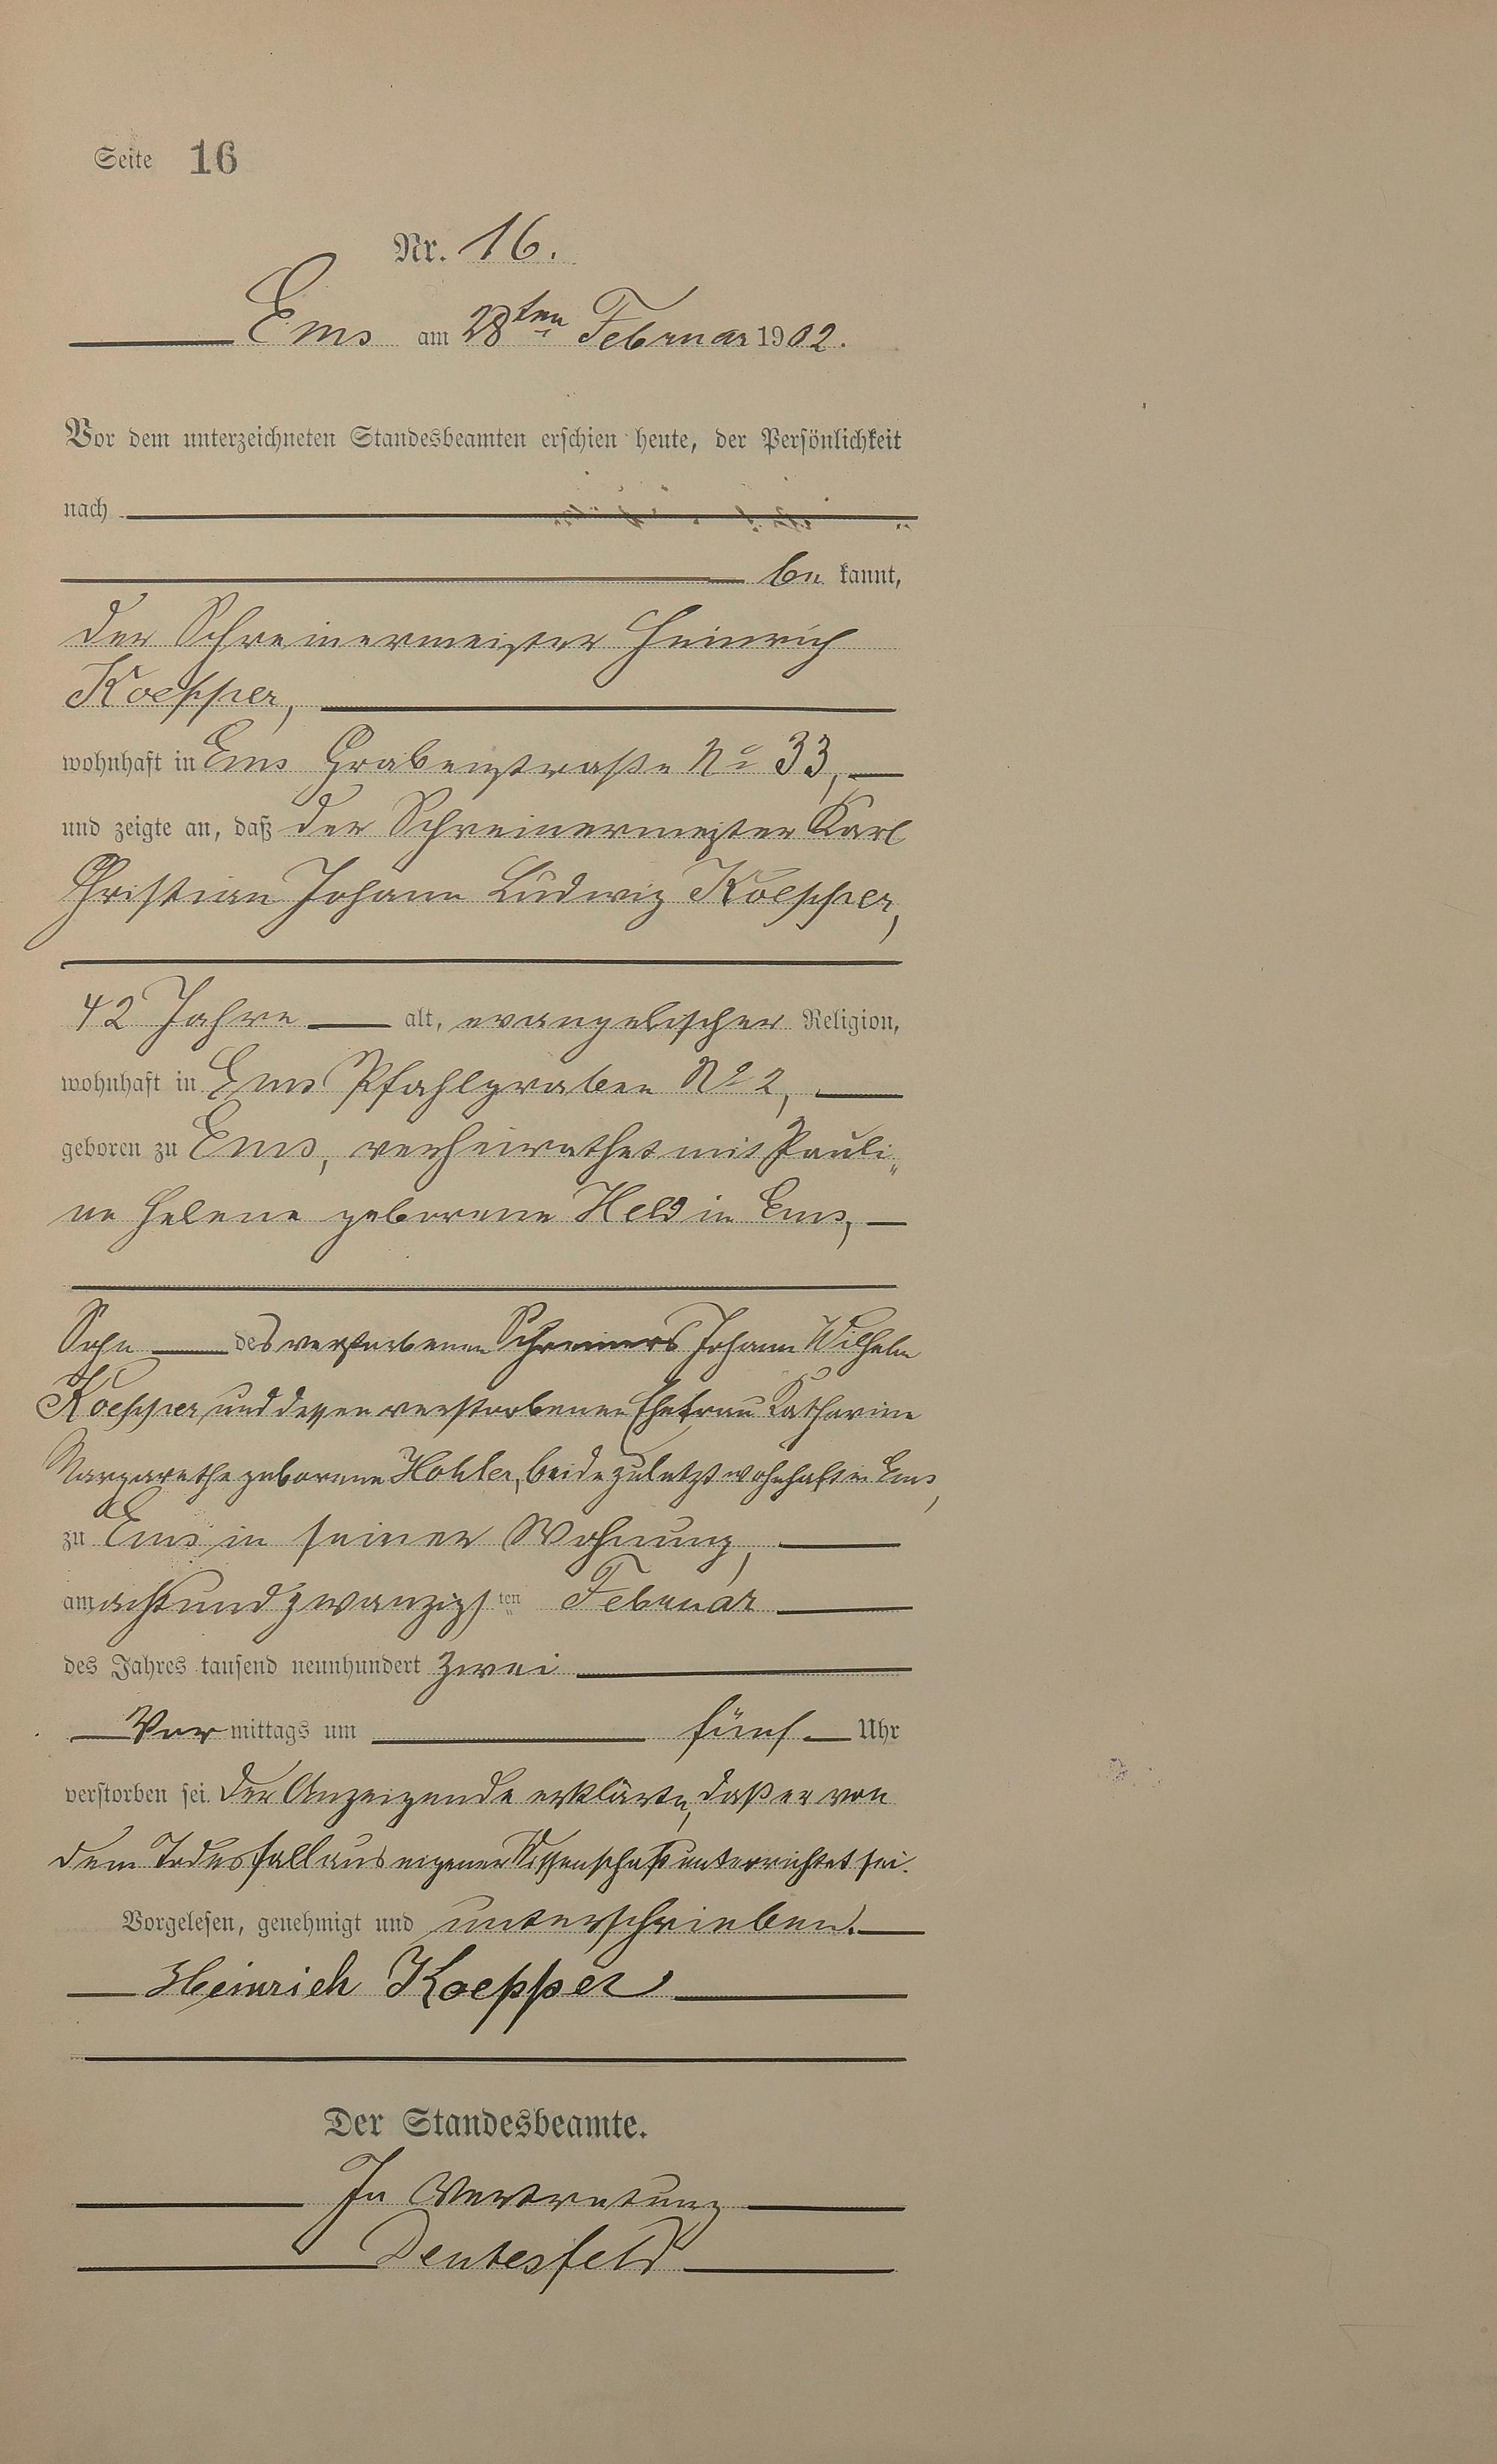 Seite 16
Nr. 16.
Ems am 28ten Februar 1902.
Vor dem unterzeichneten Standesbeamten erschien heute, der Persönlichkeit
nach
be kannt,
der Schreinermeister Heinrich
Koepper,
wohnhaft in Ems Grabenstraße No 33,
und zeigte an, daß der Schreinermeister Karl
Christian Johann Ludwig Koepper,
42 Jahre alt, evangelischer Religion,
wohnhaft in Ems Pfahlgraben No 2,
geboren zu Ems, verheirathet mit Pauli„
ne Helene geborene Held in Ems,
Sohn des verstorbenen Schreiners Johann Wilhelm
Koepper und dessen verstorbenen Ehefrau Katharine
Margarethe geborene Hohler, beide zuletzt wohnhaft in Ems,
zu Ems in seiner Wohnung,
am achtundzwanzigsten Februar
des Jahres tausend neunhundert zwei
Vor mittags um fünf Uhr
verstorben sei. Der Anzeigende erklärte, daß er von
dem Todesfall aus eigener Wissenschaft unterrichtet sei.
Vorgelesen, genehmigt und unterschrieben.
Heinrich Koepper
Der Standesbeamte.
In Vertretung
Dentesfeld